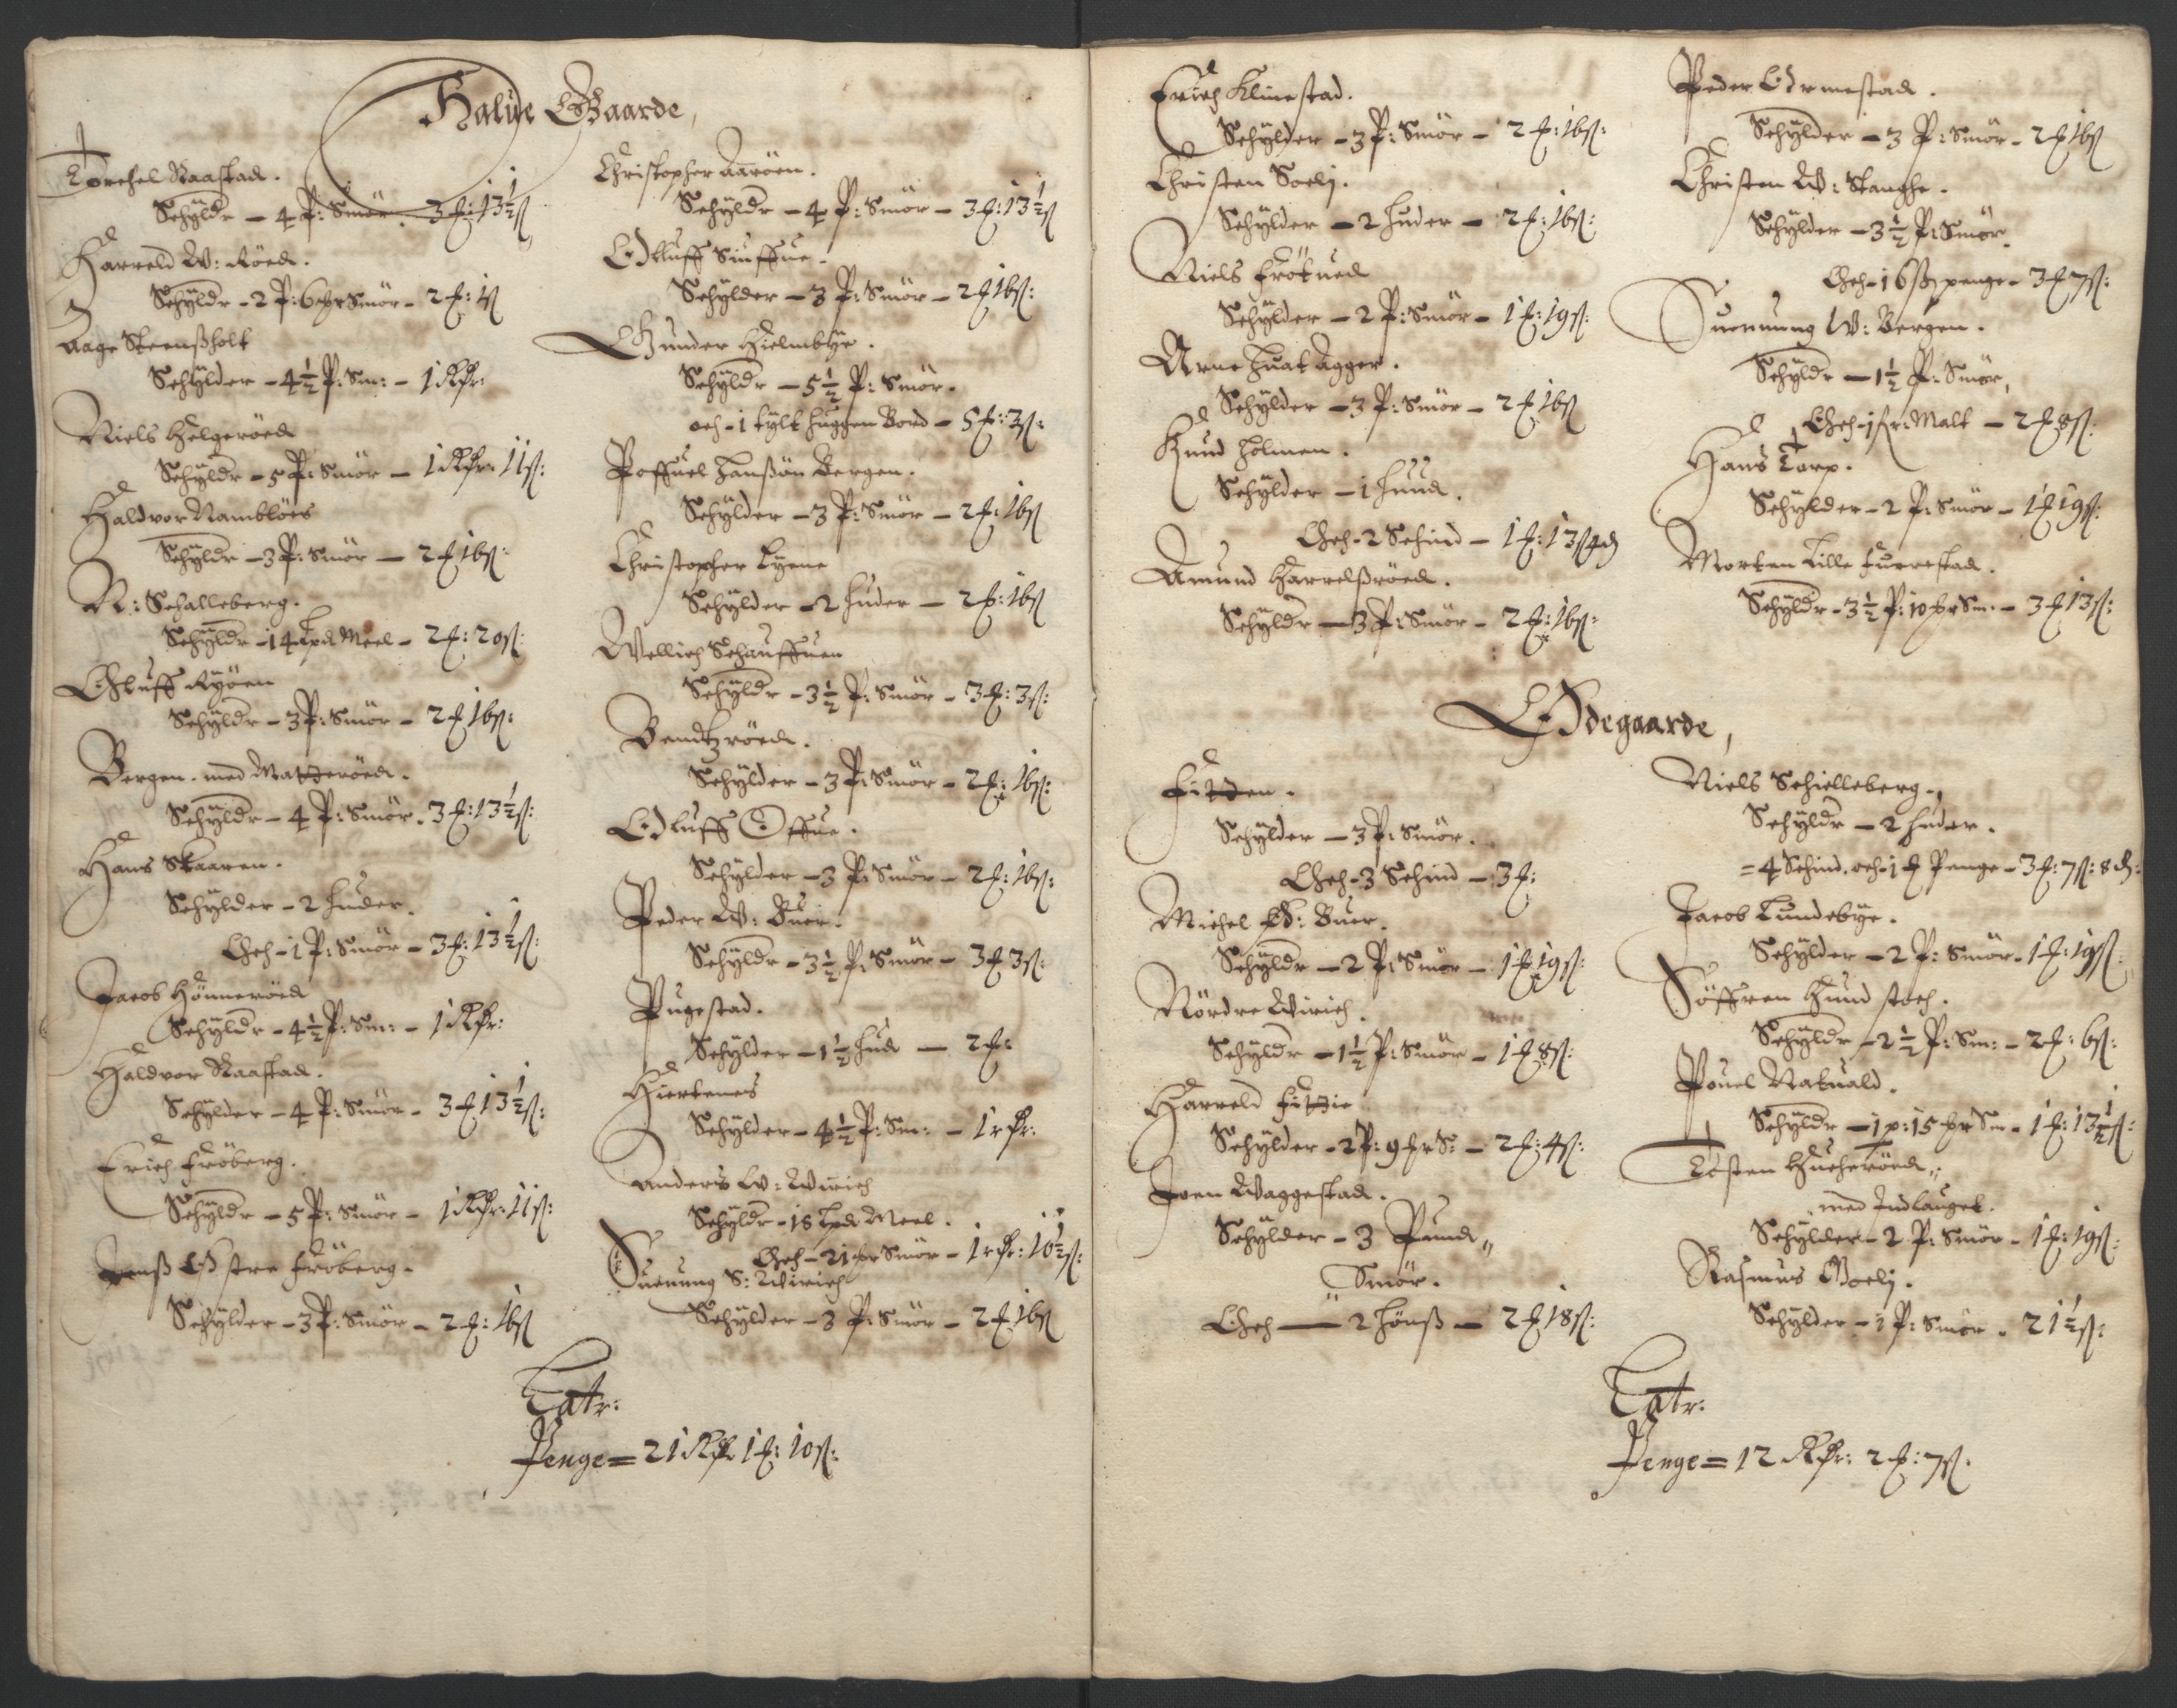 Halue Gaarde,
Torchel Raastad.
Schyldr - 4 P: Smör - 3 ƒ: 13½ ß
Harreld W: Röed.
Schyldr - 2 P: 6 Smör - 2 ƒ: 1 ß
Aage Steensholt
Schylder - 4½ P: Sm: - 1 Rdr:
Niels Helgeröed
Schyldr - 5 P: Smör - 1 Rdr: 11 ß:
Haldvor Namblöes
Schyldr - 3 P: Smör - 2 ƒ 16 ß:
N: Schalleberg.
Schyldr - 14 Lpd Meel - 2 ƒ: 20 ß:
Oluff Ryöen
Schyldr - 3 P: Smör - 2 ƒ 16 ß:
Bergen med Matzeröed.
Schyldr - 4 P: Smör - 3 ƒ: 13½ ß:
Hans Skaaren.
Schylder - 2 huder.
Och - 1 P: Smör - 3 ƒ: 13½ ß:
Jacob Hönneröed
Schyldr - 4½ P: Sm: - 1 Rdr:
Haldvor Raastad.
Schylder - 4 P: Smör - 3 ƒ 13½ ß:
Erich Fröberg.
Schyldr - 5 P: Smör - 1 Rdr: 11 ß:
Jenß Östre Fröberg.
Schylder - 3 P: Smör - 2 ƒ: 16 ß
Christopher Aaröen.
Schyldr - 4 P: Smör - 3 ƒ: 13½ ß
Olluff Siuffue.
Schylder - 3 P: Smör - 2 ƒ 16 ß:
Gunder Hielmbye.
Schyldr - 5½ P: Smör.
och - 1 tylt huggen Bord - 5 ƒ: 3 ß:
Poffuel Hanßön Bergen.
Schylder - 3 P: Smör - 2 ƒ: 16 ß
Christopher Lyene
Schylder - 2 huder - 2 ƒ: 16 ß
Wellich Schauffuen
Schyldr - 3½ P: Smör - 3 ƒ: 3 ß:
Bendtzröed.
Schylder - 3 P: Smör - 2 ƒ: 16 ß:
Oluff Offue.
Schylder - 3 P: Smör - 2 ƒ: 16 ß:
Peder W: Buer.
Schyldr - 3½ P: Smör - 3 ƒ 3 ß:
Pugestad.
Schylder - 1½ hud - 2 ƒ:
Hiertenes
Schylder - 4½ P: Sm: - 1 rdr:
Anders W: Wirich
Schyldr - 18 Lpd Meel.
Och - 21 Smör - 1 rdr: 10½ ß:
Suenung S: Wirich
Schylder - 3 P: Smör - 2 ƒ 16 ß
Latr:
Penge = 21 Rdr 1 ƒ: 10 ß:
Erich Klinestad.
Schylder - 3 P: Smör - 2 ƒ: 16 ß:
Christen Soelj.
Schylder - 2 huder - 2 ƒ: 16 ß:
Niels Frötued
Schylder - 2 P: Smör - 1 ƒ: 19 ß:
Arne Huat Agger.
Schylder - 3 P: Smör - 2 ƒ 16 ß
Knud Holmen.
Schylder - 1 huud.
Och - 2 Schind - 1 ƒ: 13 ß 4 d
Amund Harrelßröed.
Schyldr - 3 P: Smör - 2 ƒ: 16 ß:
Peder Ormestad.
Schylder - 3 P: Smör - 2 ƒ 16 ß
Christen W: Stanghe.
Schylder - 3½ P: Smör.
Och - 16 ß penge - 3 ƒ 7 ß:
Suenung W: Bergen.
Schyldr - 1½ P: Smör,
Och - 1 fr: Malt - 2 ƒ 8 ß:
Hans Torp.
Schylder - 2 P: Smör - 1 ƒ 19 ß:
Morten Lille Furrestad.
Schyldr - 3½ P: 10 Sm: - 3 ƒ 13 ß:
Ödegaarde,
Fitzen.
Schylder - 3 P: Smör.
Och - 3 Schind - 3 ƒ:
Michel Ö: Buer.
Schyldr - 2 P: Smör - 1 ƒ 19 ß:
Nördre Wirich.
Schyldr - 1½ P: Smör - 1 ƒ 8 ß:
Harreld Fitzie
Schylder - 2 P: 9 S: - 2 ƒ: 4 ß:
Joen Waggestad.
Schylder - 3 Pund
Smör.
Och - 2 Hönß - 2 ƒ 18 ß:
Niels Schielleberg.
Schyldr - 2 huder.
= 4 Schind. och - 1 ƒ Penge - 3 ƒ: 7 ß: 8 d:
Jacob Lundebye.
Schylder - 2 P: Smör - 1 ƒ: 19 ß:
Söffren Hund stoch.
Schyldr - 2½ P: Sm: - 2 ƒ: 6 ß:
Pouel Natuald.
Schyldr - 1 p: 15 Sm - 1 ƒ: 13½ ß:
Tosten Hucheröed
med Indlauget.
Schylder - 2 P: Smör - 1 ƒ: 19 ß:
Rasmus Goelj.
Schylder - 1 P: Smör - 21½ ß:
Latr:
Penge = 12 Rdr: 2 ƒ: 7 ß: